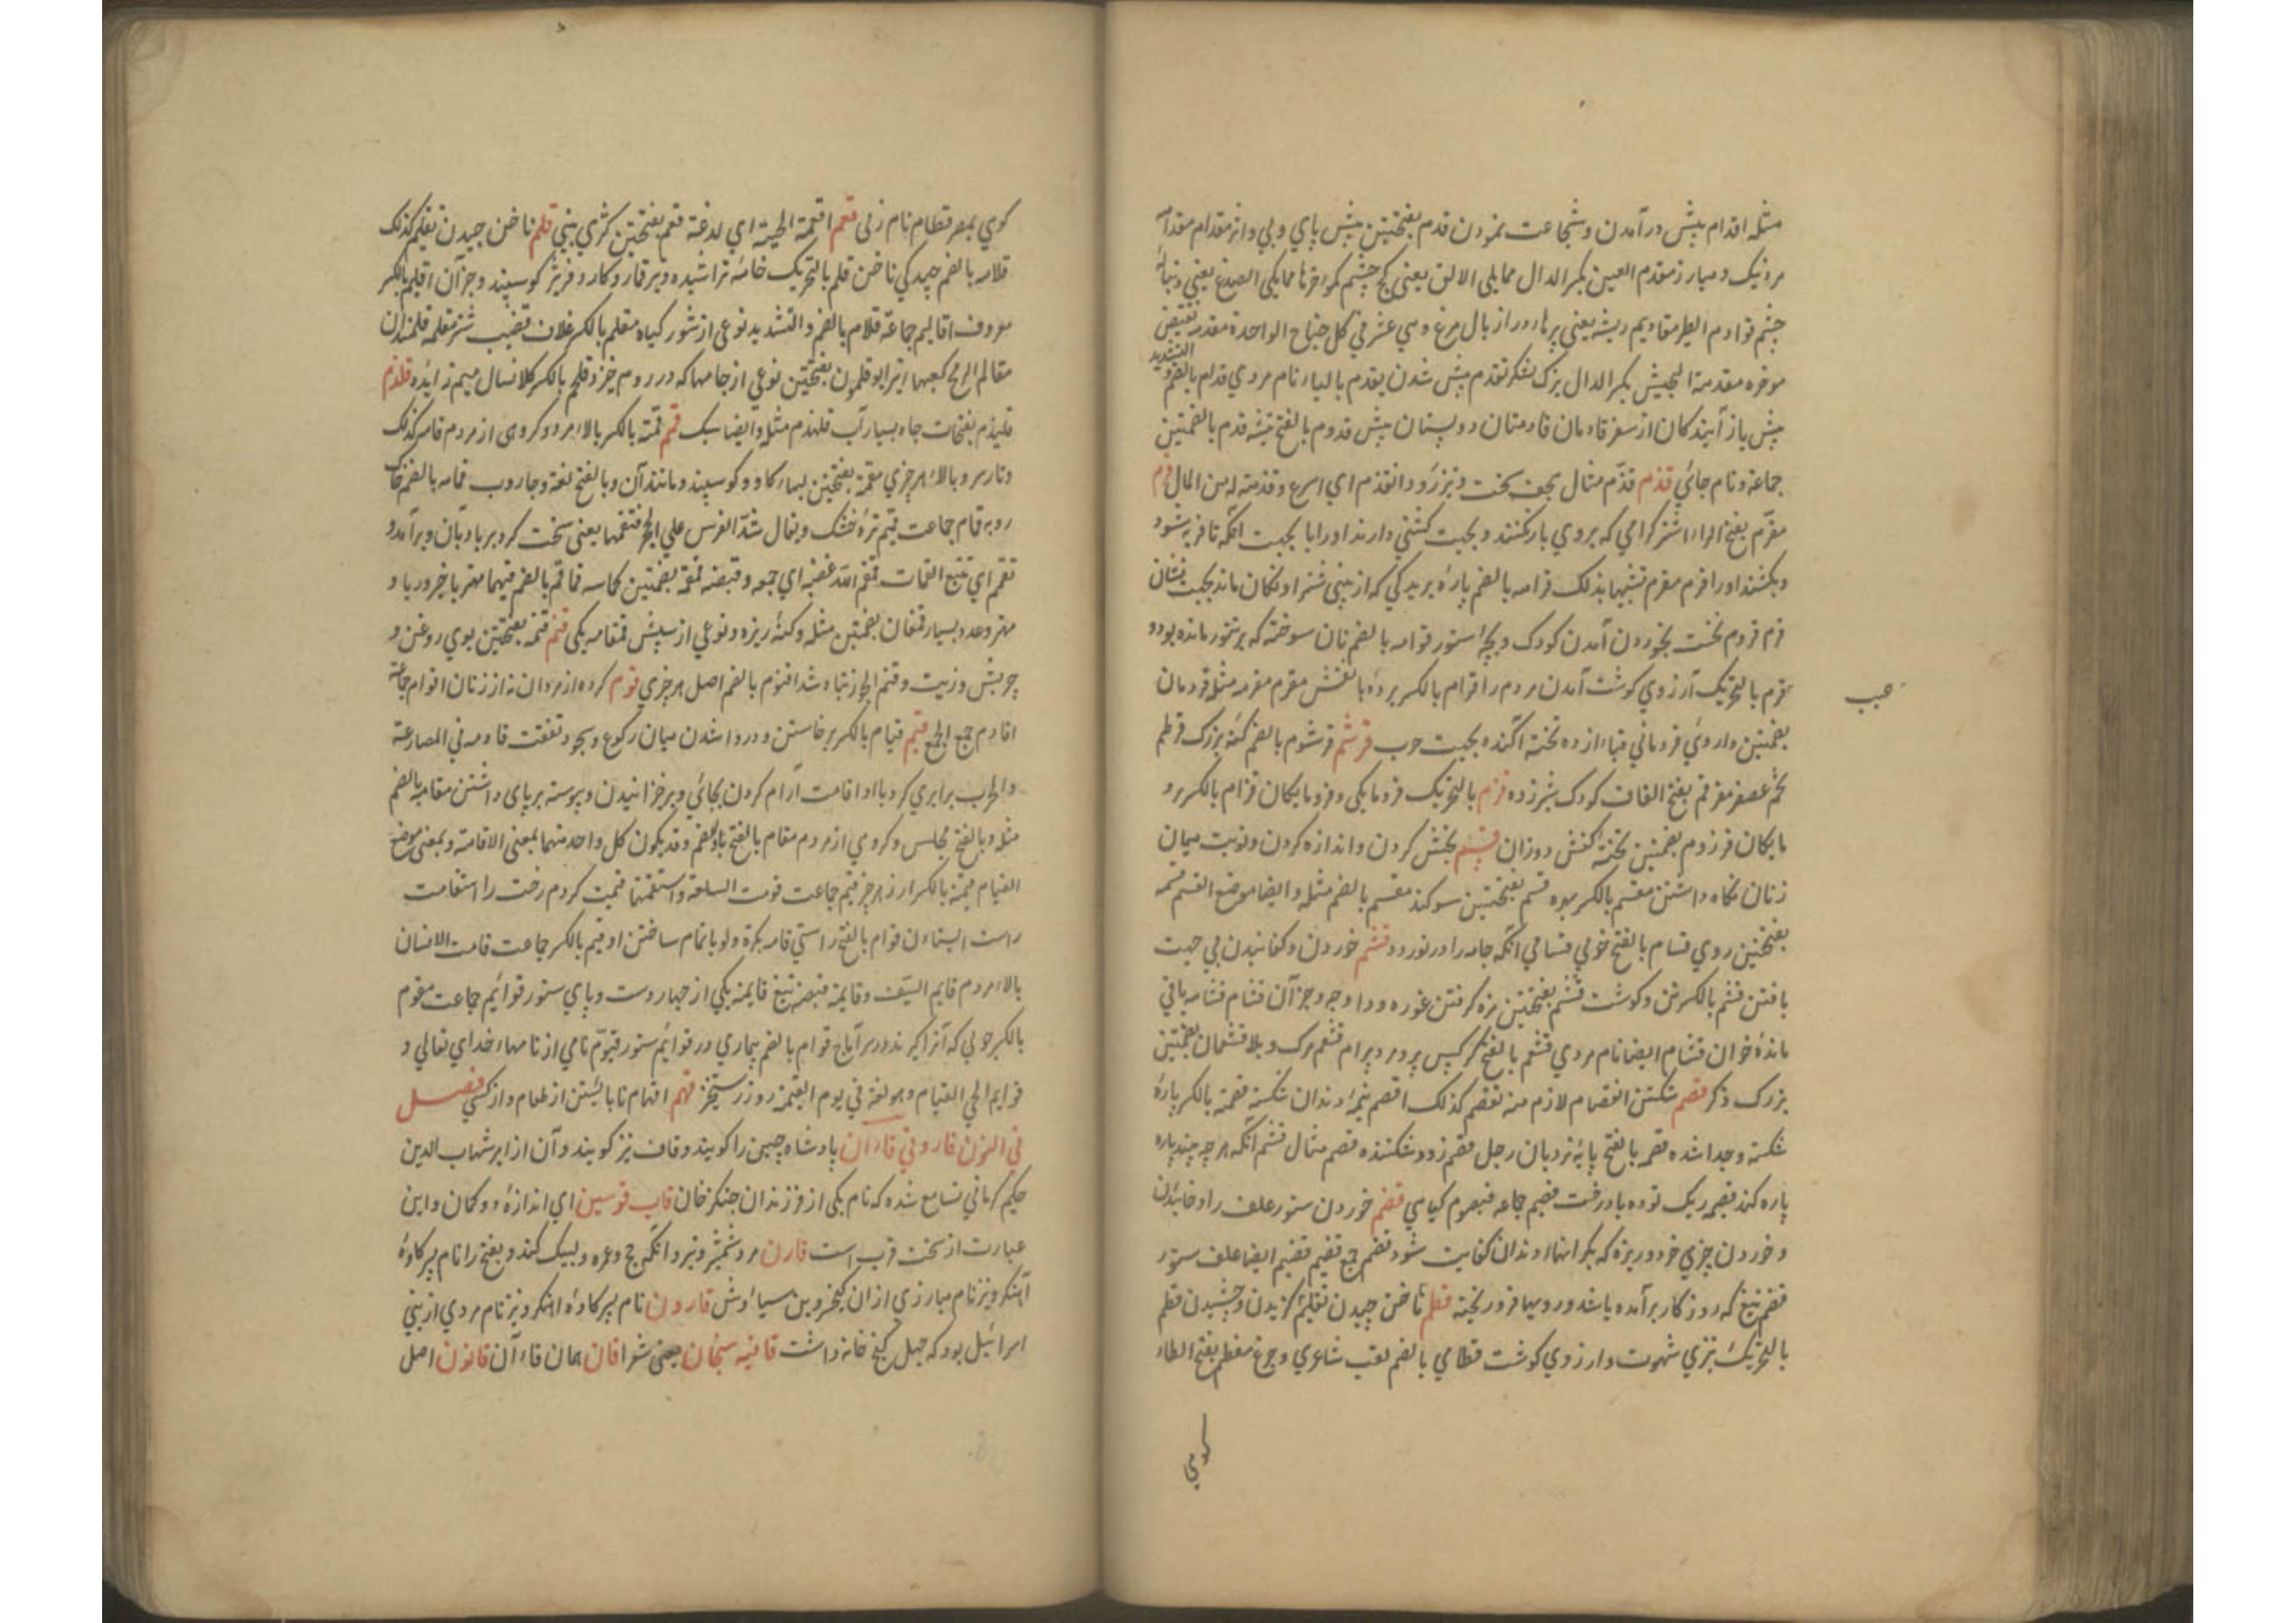 مثله اقدام پیش درآمدن و شجاعت نمودن قدم بفتحتین پیش پای و پی و اثر مقدام
مرد نیک و مبارز مقدم العین بکسر الدال مما یلی الانف یعنی کنج چشم کموخرها مما یلی الصدغ یعنی دنباله
چشم قوادم الطیر مقادیم ریشه یعنی پرها دراز بال مرغ و هی عشر فی کل جناح الواحدة مقدمه نقیض
التشدید
موخره مقدمة الجیش بکسر الدال بزرک لشکر تقدم پیش شدن یقدم بالیاء نام مردی قدام بالضم و
پیش باز آیندکان از سفر قادمان قادمتان دو پستان پیش قدوم بالفتح تیشه قدم بالضمتین
جماعة و نام جائی قذم قذم مثال سخت و بزرک و د انقذم ای اسرع و قذمته له من المال قرم
مقرم بفتح الراء اشتر کرامی که بروی بار نکنند و بجهت کشنی دارند او را یا بجهت آنکه تا فربه شود
و بکشند او را قرم مقرم تشبیها بذلک قرامه بالضم پاره بریدکی که از بینی شتر او نکان ماند بجهت نشان
قرم قروم نخست بخوردن آمدن کودک و بچه ستور قرامه بالضم نان سوخته که بر تنور مانده بود و
قرم بالتحریک آرزوی کوشت آمدن مردم را قرام بالکسر پرده با نقش مقرم مقرمه مثله قردمان
حبب
بضمتین داروی قردمانی قباء از ده تخته آکنده بجهت حرب قرشم قرشوم بالضم کنه بزرک قرطم
تخم عصفر مقرقم بفتح القاف کودک شیرزده قزم بالتحریک فرومایکی و فرومایکان قزام بالکسر
مایکان قرزوم بضمتین تخته کفش دوزان قسم بخش کردن و اندازه کردن و نوبت میان
زنان نکاه داشتن مقسم بالکسر بهره قسم بفتحتین سوکند مقسم بالضم مثله و ایضا موضع القسم قسمه
بفتحتین روی قسام بالفتح خوبی قسامی آنکه جامه را در نوردد قشم خوردن و کفانیدن پی جهت
بافتن قشم بالکسر تن و کوشت قشم بفتحتین بره کرفتن غوره و دا و جو و جز آن قشام قشامه باقی
مانده خوان قشام ایضا نام مردی قشعم بالفتح کرکس پیر و مرد پیر ام قشعم مرک و بلا قشعمان بضمتین
بزرک و کر قصم شکستن انقصام لازم منه تقصم کذلک اقصم نیمه دندان شکسته قصمه بالکسر پاره
شکسته و جدا شده قصمه بالفتح پایه نردبان رجل قصم زود شکننده قصم مثال قشم آنکه هر چه بیند پاره
پاره کند قصیمه ریک توده بادرخت قصیم جماعه قیصوم کیاهی قضم خوردن ستور علف را و خائیدن
و خوردن چیزی خرد و ریزه که بکرانها دندان کفایت شود قضم جمع قضیم قضیم ایضا علف ستور
قضم تیغ که روزکار برآمده باشد و رویها فرو ریخته قطم ناخن چیدن تقلیم کزیدن و چشیدن قطم
بالتحریک تیزی شهوت و ارزوی کوشت قطامی بالضم لقب شاعری و چرغ مقطم بفتح الطاء
کوهی
کوهی بمصر قطام نام زنی قعم اقعمته الحیة ای لدغته قعم بفتحتین کژی بینی قلم ناخن چیدن تقلیم کذلک
قلامه بالضم چیدکی ناخن قلم بالتحریک خامه تراشیده و تیر قمار و کارد فربز کوسپند و جز آن اقلیم بالکسر
معروف اقالیم جماعة قلام بالضم و التشدید نوعی از شور کیاه مقلم بالکسر غلاف قضیب شتر مقلمه قلمندان
مقالم الرمح کعبها ایز ابو قلمون بفتحتین نوعی از جامها که در روم خیزد قلحم بالکسر کلانسال میم زایده قلذم
قلیذم بفتحات چاه بسیار آب قلهذم مثله و ایضا سبک قمم قمه بالکسر بالاء مرد و کروهی از مردم قامه کذلک
و تار سر و بالاء هر چیزی مقمه بفتحتین لبهاء کاو و کوسپند و مانند آن و بالفتح لغة و جاروب قمامه بالضم خاک
روبه قام جماعت قمیم تره خشک و یقال شد الفرس علی الحجر فتقممها یعنی سخت کرد بر بادیان و برآمد و
تقمم ای تتبع القمامات قمقم الله عصبه ای جمعه و قبضه قمقمه بضمتین کاسه قماقم بالضم فیهما مهتر با خیر و ریا و
مهتر و عدد بسیار قمقان بضمتین مثله و کنه ریزه و نوعی از سپش قمقامه یکی قنم قنمه بفتحتین بوی روغن و
چربش و زیت و قنم الجوز تباه شد اقنوم بالضم اصل هر چیزی قوم کروه از مردان نه از زنان اقوام جماعة
اقاوم جمع الجمع قیم قیام بالکسر برخاستن و دروا شدن میان رکوع و سجود تفقت قاومه فی المصارعة
و الحرب برابری کرد با او اقامت آرام کردن بجائی و برخزانیدن و پیوسته برپای داشتن مقامه بالضم
مثله و بالفتح مجلس و کروهی از مردم مقام بالفتح بالضم و قد یکون کل واحد منهما بمعنی الاقامة و بمعنی موضع
القیام قیمة بالکسر ارز هر چیز قیم جماعت قومت السلعة و استقمتها قیمت کردم رخت را استقامت
راست ایستادن قوام بالفتح راستی قامه بکره ولو باتمام ساختن او قیم بالکسر جماعت قامت الانسان
بالاء مردم قایم السیف و قایمه قبضه تیغ قایمه یکی از چهار دست و پای ستور قوائم جماعت مقوم
بالکسر چوبی که آنرا کیرند در سر آماج قوام بالضم بیماری در قوائم ستور قیوم نامی از نامهاء خدای تعالی و
قوایم الحی القیام و هو لغة فی یوم القیمة روز رستخیز قهم اقهام نابایستن از طعام و از کسی فصــل
فی النون فارونی قاءآن پادشاه چین را کویند و قاف نیز کویند و آن از ابر شهاب الدین
حکیم کرمانی تسامع شده که نام یکی از فرزندان جنکزخان قاب قوسین ای اندازه دو کمان و این
عبارت از سخت قرب است قارن مرد شمشیر و تیر و آنکه حج و عمره و لبیک کند و بفتح را نام پسر کاوه
آهنکر و نیز نام مبارزی از ان کیخسرو بن سیاوش قارون نام پسر کاوه آهنکر و نیز نام مردی از بنی
اسرائیل بود که چهل کنج خانه داشت قافیه سنجان یعنی شعرا قان همان قاءآن قانون اصل